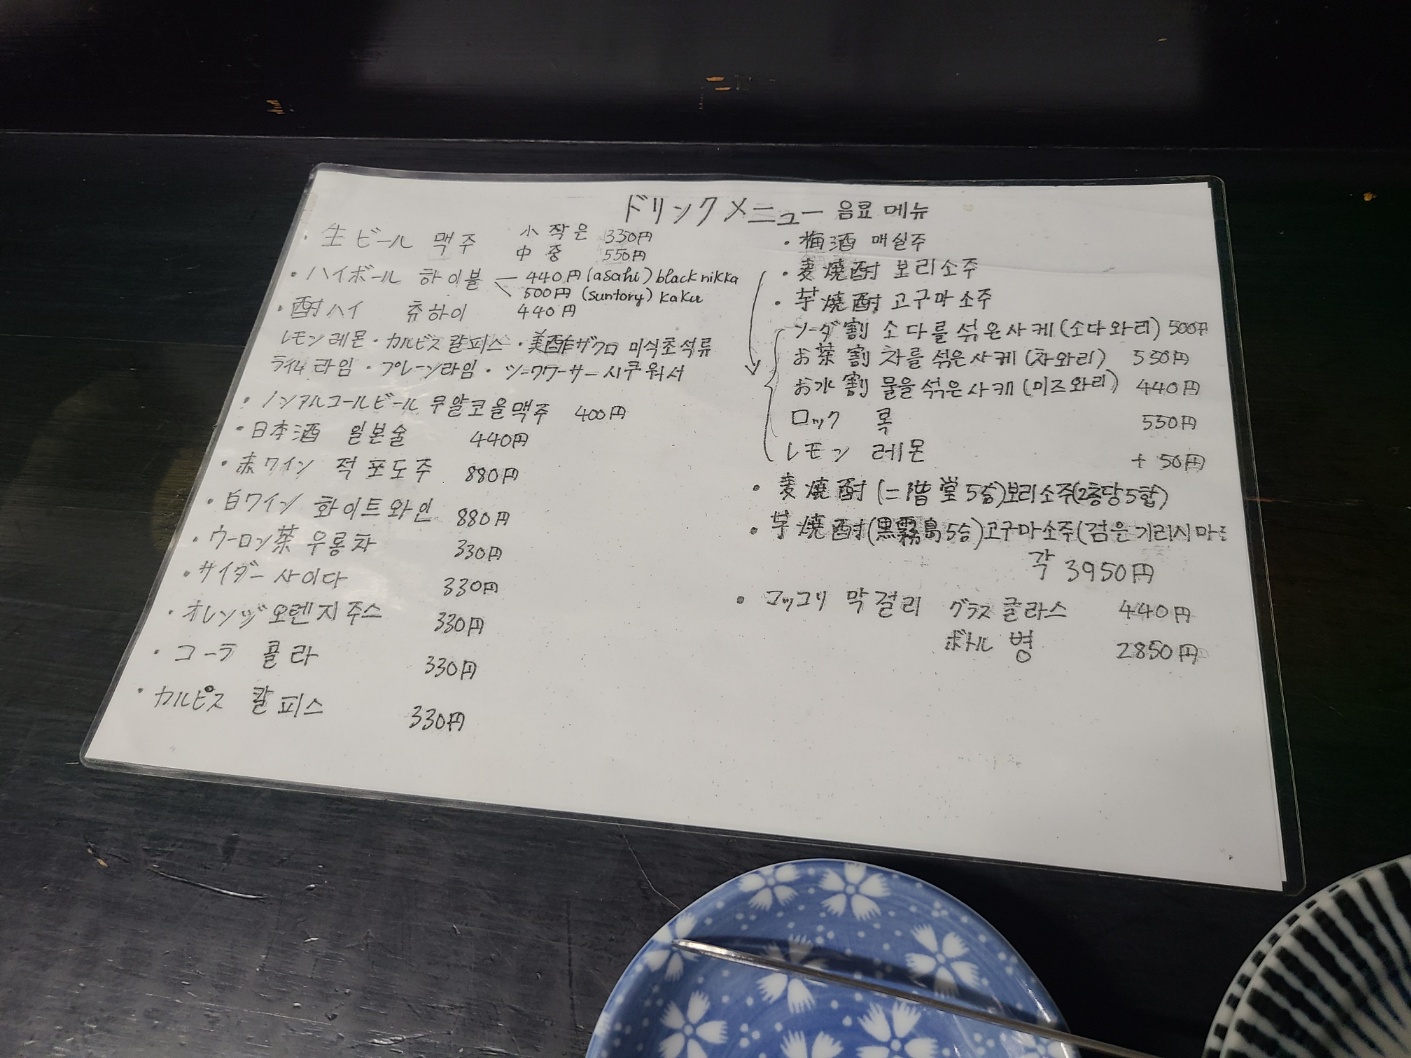 ドリンクメニュー 음료 메뉴
生ビール 맥주 小 작은 330円
中 중 550円
・ハイボール 하이볼 440円 (asahi) black nikka
500円 (suntory) kaku
・酎ハイ 츄하이 440円
レモン 레몬・カルピス 칼피스・美酢ザクロ 미식초석류
ライム 라임・プレーン라임・シークワーサー 시쿠워서
・ノンアルコールビール 무알코올맥주 400円
・日本酒 일본술 440円
・赤ワイン 적포도주 880円
・白ワイン 화이트와인 880円
・ウーロン茶 우롱차 330円
・サイダー 사이다 330円
・オレンジ 오렌지주스 330円
・コーラ 콜라 330円
・カルピス 칼피스 330円
・梅酒 매실주
・麦焼酎 보리소주
・芋焼酎 고구마소주
ソーダ割 소다를 섞은사케 (소다와리) 500円
お茶割 차를 섞은사케 (차와리) 550円
お水割 물을 섞은사케 (미즈와리) 440円
ロック 록 550円
レモン 레몬 +50円
・麦焼酎 (二階堂5合) 보리소주(2층당5합)
・芋焼酎 (黒霧島5合) 고구마소주(검은기리시마
각 3950円
・マッコリ 막걸리 グラス 글라스 440円
ボトル 병 2850円